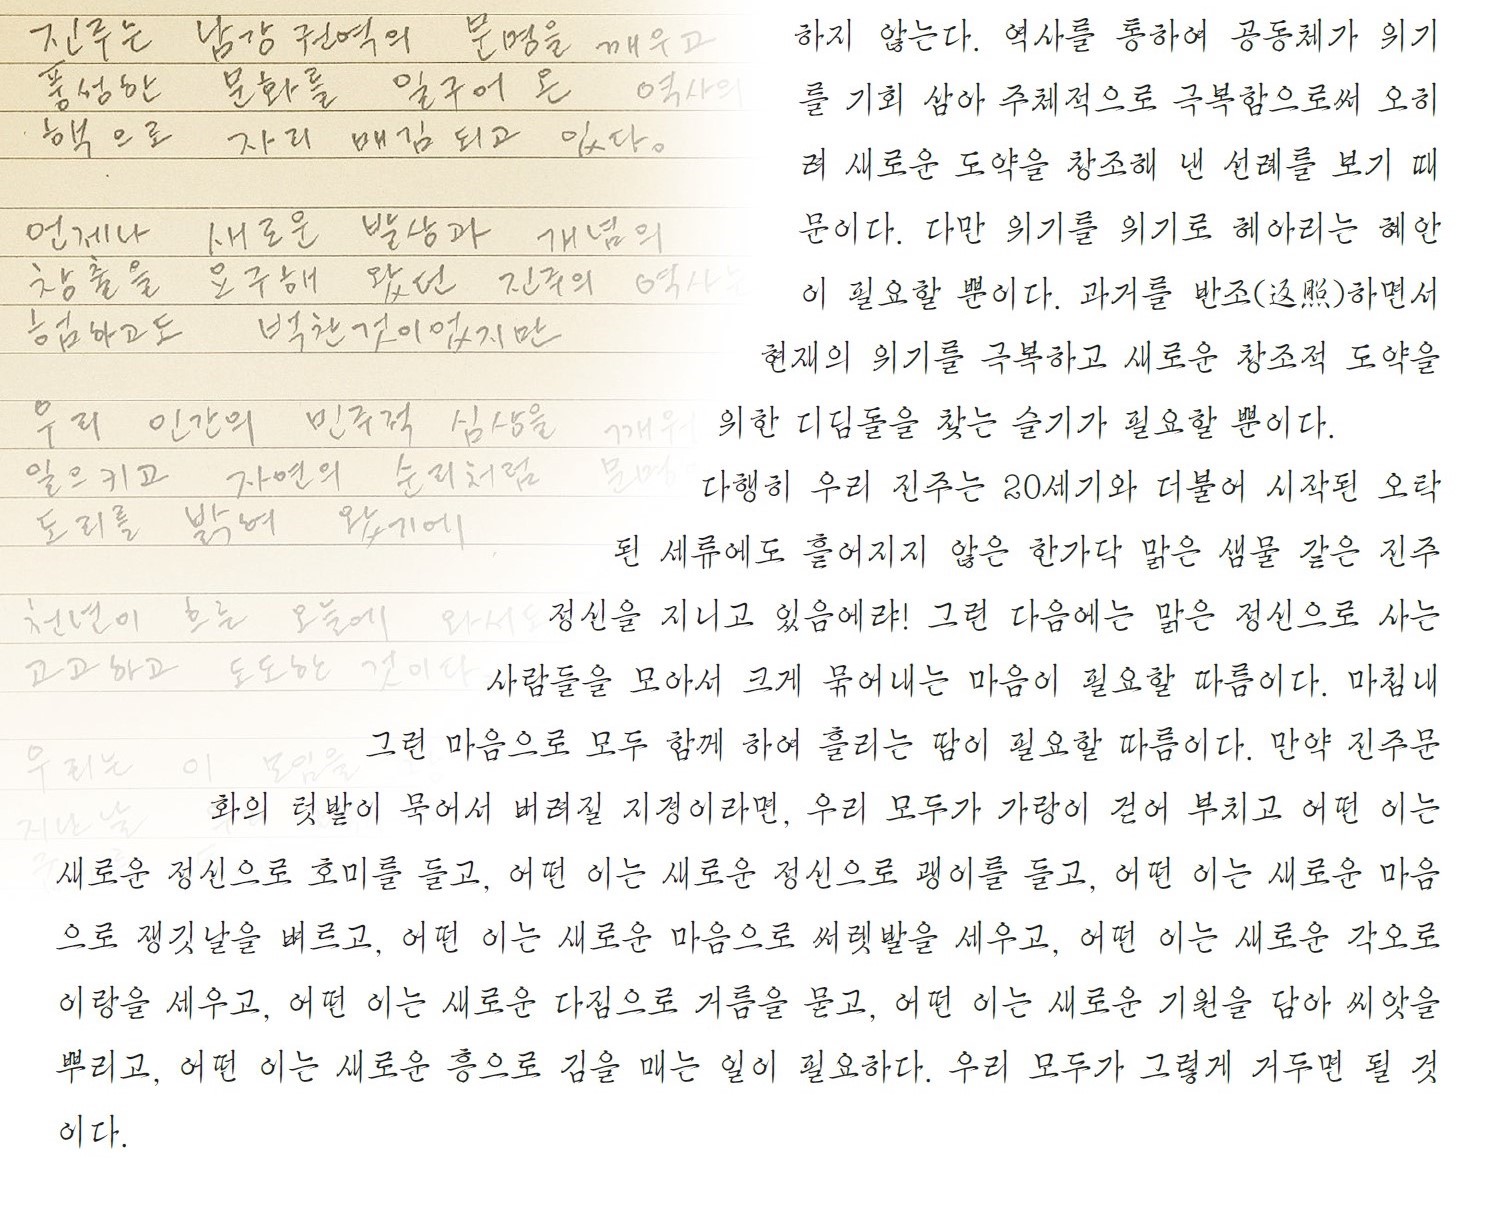 진주는 남강권역의 문명을 깨우고
풍성한 문화를 일구어 온 역사의
핵으로 자리 매김되고 있다.
언제나 새로운 발상과 개념의
창출을 요구해 왔던 진주의 역사는
험하고도 벅찬것이었지만
우리 인간의 민주적 심상을 깨워
일으키고 자연의 순리처럼 문명
도리를 밝혀 왔기에
천년이 흐른 오늘에 와서도
고고하고 도도한 것이다
우리는 이 모임을
지난날
하지 않는다. 역사를 통하여 공동체가 위기
를 기회 삼아 주체적으로 극복함으로써 오히
려 새로운 도약을 창조해 낸 선례를 보기 때
문이다. 다만 위기를 위기로 헤아리는 혜안
이 필요할 뿐이다. 과거를 반조(返照)하면서
현재의 위기를 극복하고 새로운 창조적 도약을
위한 디딤돌을 찾는 슬기가 필요할 뿐이다.
다행히 우리 진주는 20세기와 더불어 시작된 오탁
된 세류에도 흩어지지 않은 한가닥 맑은 샘물 같은 진주
정신을 지니고 있음에랴! 그런 다음에는 맑은 정신으로 사는
사람들을 모아서 크게 묶어내는 마음이 필요할 따름이다. 마침내
그런 마음으로 모두 함께 하여 흘리는 땀이 필요할 따름이다. 만약 진주문
화의 텃밭이 묵어서 버려질 지경이라면, 우리 모두가 가랑이 걷어 부치고 어떤 이는
새로운 정신으로 호미를 들고, 어떤 이는 새로운 정신으로 괭이를 들고, 어떤 이는 새로운 마음
으로 쟁깃날을 벼르고, 어떤 이는 새로운 마음으로 써렛발을 세우고, 어떤 이는 새로운 각오로
이랑을 세우고, 어떤 이는 새로운 다짐으로 거름을 묻고, 어떤 이는 새로운 기원을 담아 씨앗을
뿌리고, 어떤 이는 새로운 흥으로 김을 매는 일이 필요하다. 우리 모두가 그렇게 거두면 될 것
이다.